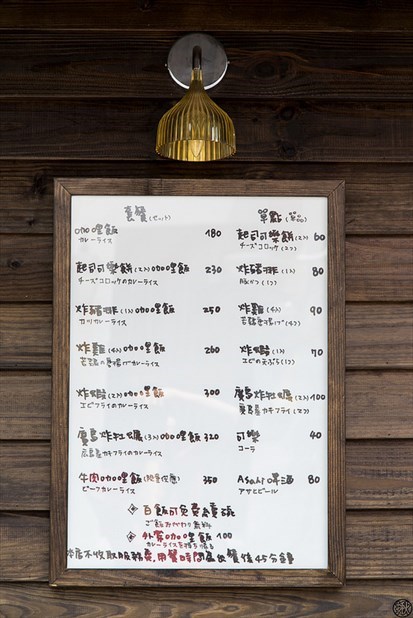 套餐(セット)
單點(單品)
咖哩飯 180
カレーライス
起司可樂餅(2入) 60
チーズコロッケ(2つ)
起司可樂餅(2入)咖哩飯 230
チーズコロッケのカレーライス
炸豬排(1入) 80
豚かつ(1つ)
炸豬排(1入)咖哩飯 250
カツカレーライス
炸雞(4入) 90
若鶏唐揚げ(4つ)
炸雞(4入)咖哩飯 260
若鶏の唐揚げカレーライス
炸蝦(1入) 70
エビの天ぷら(1つ)
炸蝦(2入)咖哩飯 300
エビフライのカレーライス
廣島炸牡蠣(2入) 100
廣島産カキフライ(2つ)
廣島炸牡蠣(3入)咖哩飯 320
広島産カキフライのカレーライス
可樂 40
コーラ
牛肉咖哩飯 350
ビーフカレーライス
Asahi啤酒 80
アサヒビール
白飯可免費續添
ご飯おかわり無料
外帶咖哩飯 100
カレーライスを持ち帰る
本店不收取服務費,用餐時間最後餐後45分鐘